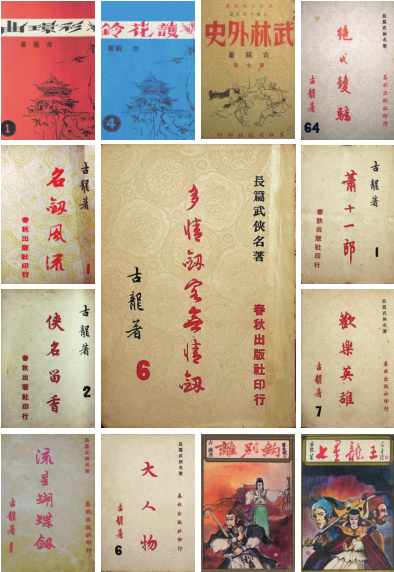 彩環曲
古龍著
1
護花鈴
古龍著
4
武林外史
古龍著
長篇武俠名著
絕代雙驕
古龍著
春秋出版社印行
64
古龍著
名劔風流
春秋出版社印行
1
長篇武俠名著
多情劔客無情劔
古龍著
春秋出版社印行
6
古龍著
蕭十一郎
春秋出版社印行
1
古龍著
俠名留香
春秋出版社印行
2
長篇武俠名著
歡樂英雄
古龍著
春秋出版社印行
7
長篇武俠名著
流星蝴蝶劔
古龍著
春秋出版社印行
1
長篇武俠名著
大人物
古龍著
春秋出版社印行
6
離別鈎
古龍
七星龍王